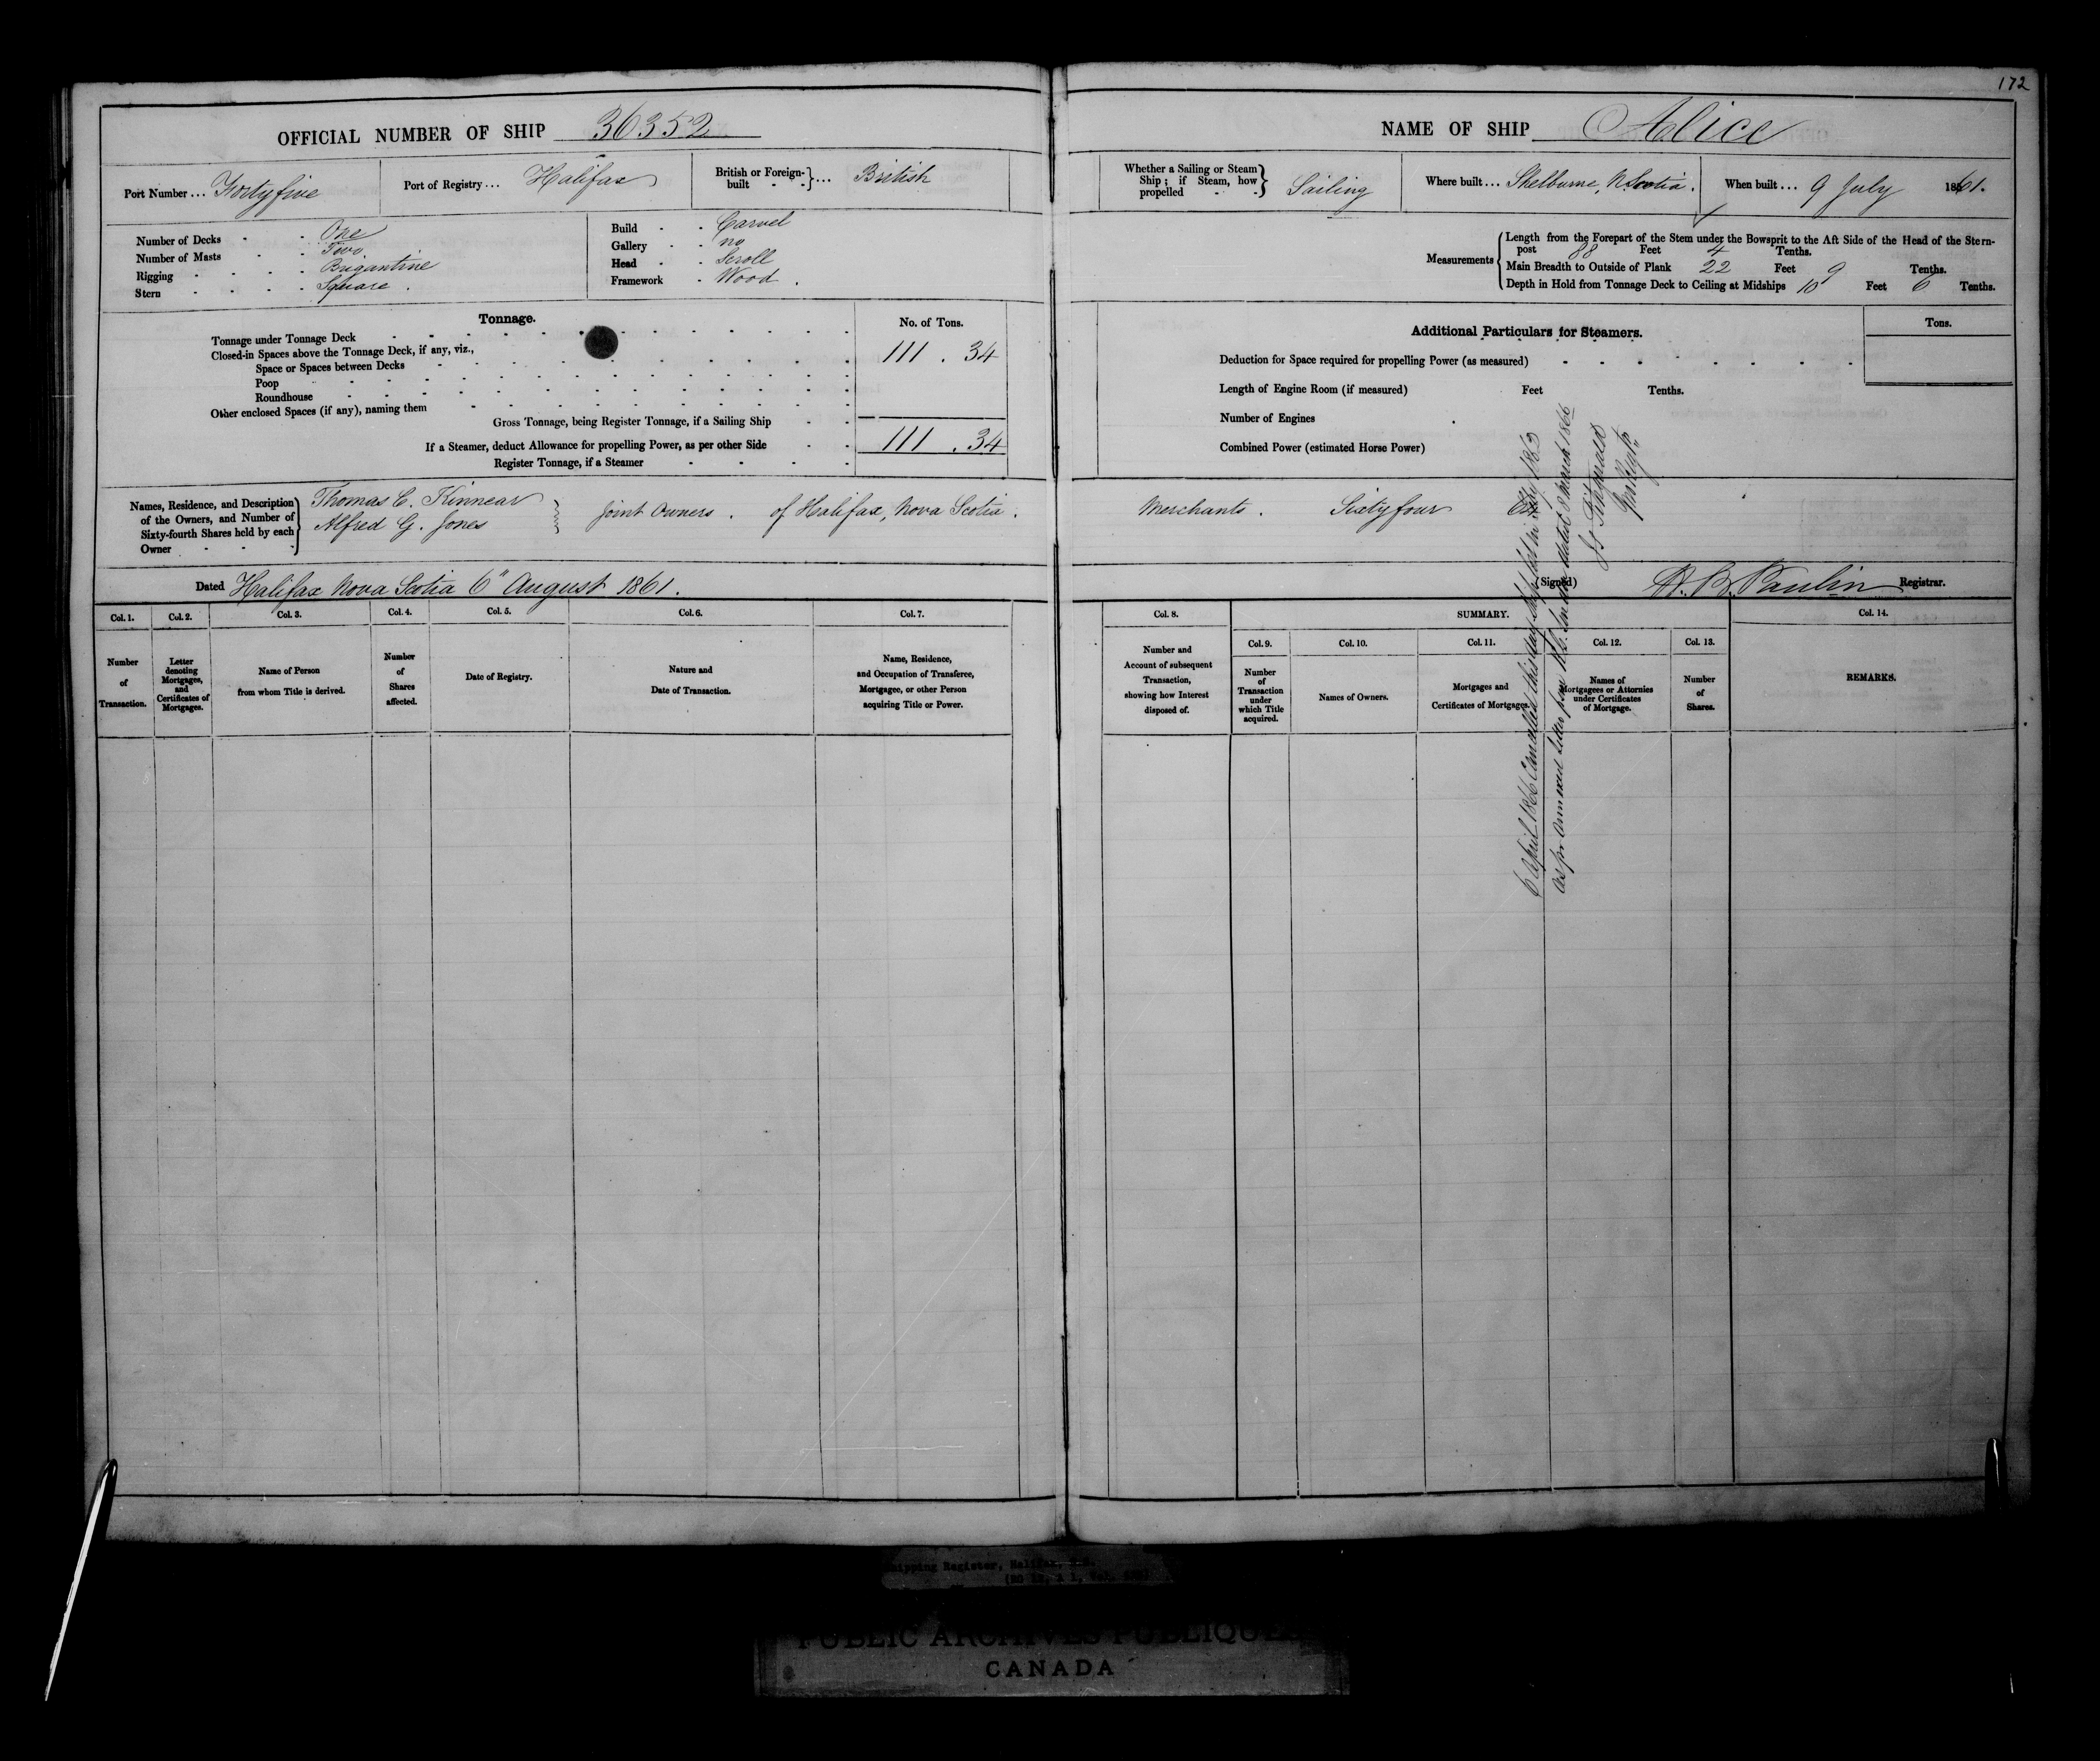 172
OFFICIAL NUMBER OF SHIP 36352
Port Number ... Forty five
Port of Registry ... Halifax
British or Foreign-built ... British
Number of Decks - - One
Number of Masts - - Two
Rigging - - - - Brigantine
Stern - - - - Square.
Build - - Carvel
Gallery - - no
Head - - Scroll
Framework - Wood.
Tonnage.
No. of Tons.
Tonnage under Tonnage Deck
111 . 34
Closed-in Spaces above the Tonnage Deck, if any, viz.,
Space or Spaces between Decks
Poop
Roundhouse
Other enclosed Spaces (if any), naming them
Gross Tonnage, being Register Tonnage, if a Sailing Ship
If a Steamer, deduct Allowance for propelling Power, as per other Side
111 . 34
Register Tonnage, if a Steamer
Names, Residence, and Description
of the Owners, and Number of
Sixty-fourth Shares held by each
Owner
Thomas C. Kinnear
Alfred G. Jones
Joint Owners . of Halifax, Nova Scotia .
Dated Halifax Nova Scotia 6" August 1861.
Col. 1.
Col. 2.
Col. 3.
Col. 4.
Col. 5.
Col. 6.
Col. 7.
Number
of
Transaction.
Letter
denoting
Mortgages,
and
Certificates of
Mortgages.
Name of Person
from whom Title is derived.
Number
of
Shares
affected.
Date of Registry.
Nature and
Date of Transaction.
Name, Residence,
and Occupation of Transferee,
Mortgagee, or other Person
acquiring Title or Power.
NAME OF SHIP Alice
Whether a Sailing or Steam
Ship; if Steam, how
propelled
Sailing
Where built ... Shelburne, N. Scotia.
When built ... 9 July 1861.
Measurements
Length from the Forepart of the Stem under the Bowsprit to the Aft Side of the Head of the Stern-
post 88 Feet 4 Tenths.
Main Breadth to Outside of Plank 22 Feet 9 Tenths.
Depth in Hold from Tonnage Deck to Ceiling at Midships 10 Feet 6 Tenths.
Additional Particulars for Steamers.
Tons.
Deduction for Space required for propelling Power (as measured)
Length of Engine Room (if measured) Feet Tenths.
Number of Engines
Combined Power (estimated Horse Power)
Merchants . Sixty four
(Signed) H. B. Paulin Registrar.
6 April 1866 Cancelled this day lost in 1863
As per annexed letter from dated 8 March 1866
Col. 8.
SUMMARY.
Col. 14.
Number and
Account of subsequent
Transaction,
showing how Interest
disposed of.
Col. 9.
Col. 10.
Col. 11.
Col. 12.
Col. 13.
Number
of
Transaction
under
which Title
acquired.
Names of Owners.
Mortgages and
Certificates of Mortgages.
Names of
Mortgagees or Attornies
under Certificates
of Mortgage.
Number
of
Shares.
REMARKS.
Shipping Register, Halifax,
PUBLIC ARCHIVES PUBLIQUES
CANADA